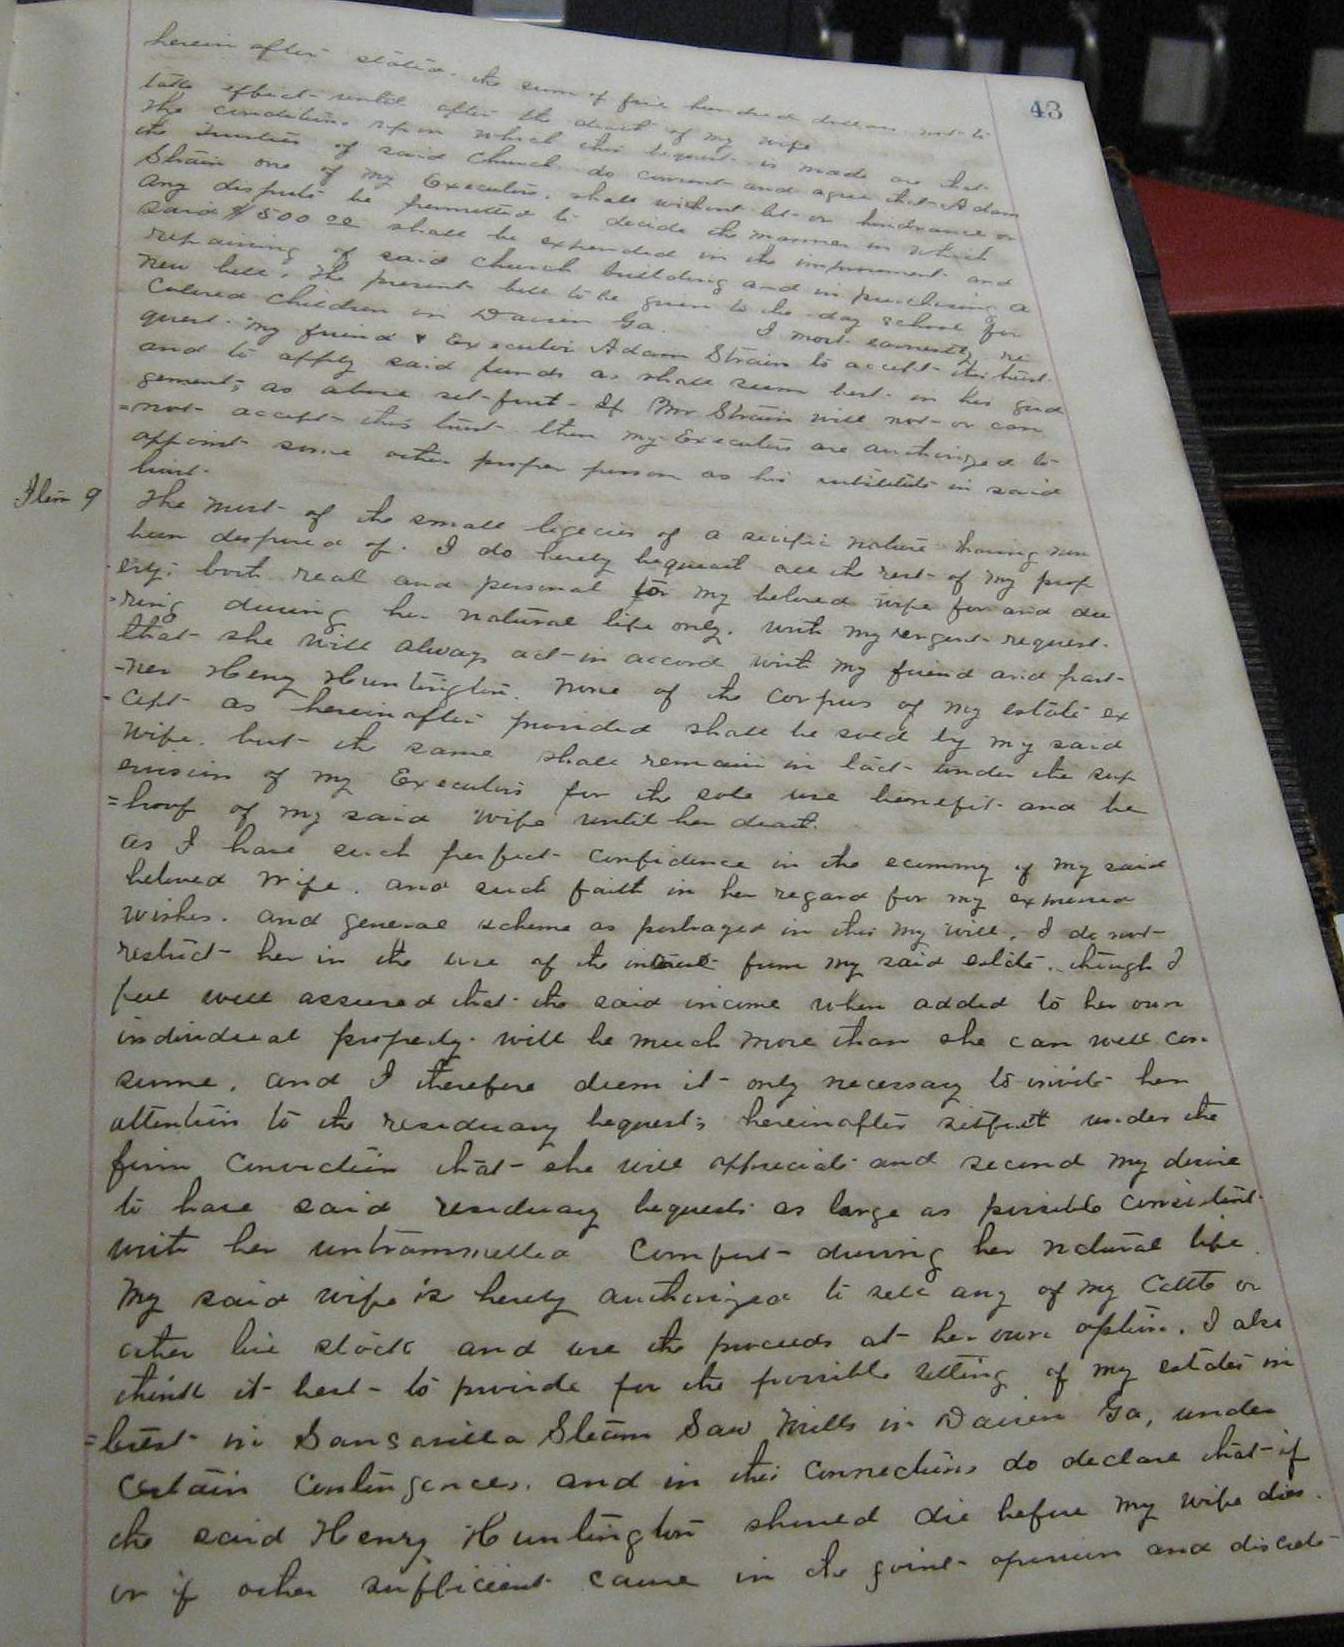 43
herein after stated. the sum of five hundred dollars not to
take effect until after the death of my wife
The conditions upon which this bequest is made are that
the Trustees of said Church do consent and agree that Adam
Strain one of my Executors. shall without let or hindrance or
any dispute be permitted to decide the manner in which
said $500 00 shall be expended in the improvement and
repairing of said Church building and in purchasing a
new bell. The present bell to be given to the day school for
Colored Children in Darien Ga. I most earnestly re
quest my friend & Executor Adam Strain to accept this trust
and to apply said funds as shall seem best in his jud
gement, as above set furt. If Mr Strain will not or can
=not accept this trust then my Executors are authorized to
appoint some other proper person as his substitute in said
trust.
Item 9 The most of the small legecies of a scific nature having now
been desposed of. I do hereby bequeat all the rest of my prop
erty. both real and personal to my beloved wife for and du
=ring during her natural life only. with my urgent request.
that she will always act in accord with my friend and part-
-ner Heny Huntington. None of the corpus of my estate ex
-cept as hereinafter provided shall be sold by my said
wife. but the same shall remain in tact under the sup
ervision of my Executors for the sole use benefit and be
=hoof of my said wife until her deat.
as I have such perfect confidence in the ecommy of my said
beloved wife. and such faith in her regard for my expressed
wishes. and general scheme as portrayed in this my will, I do not
restrict her in the use of the interest from my said estate. though I
feel well assured that the said income when added to her own
individual property. will be much more than she can well con
sume, and I therefore deem it only necessary to invite her
attention to the residuary bequests hereinafter setfurt under the
firm conviction that she will appreciate and second my desire
to have said residuary bequests as large as possible consistent
with her untrammelled comfort during her natural life.
My said wife is hereby authorized to sell any of my Cattle or
other live stock and use the proceeds at her own option. I also
think it best to provide for the possible selling of my estates in
=terest in Sansavilla Steam Saw Mills in Darien Ga, under
certain contingences. and in this connections do declare that if
the said Henry Huntington should die before my wife dies.
or if other sufficient cause in the joint opinion and discrete